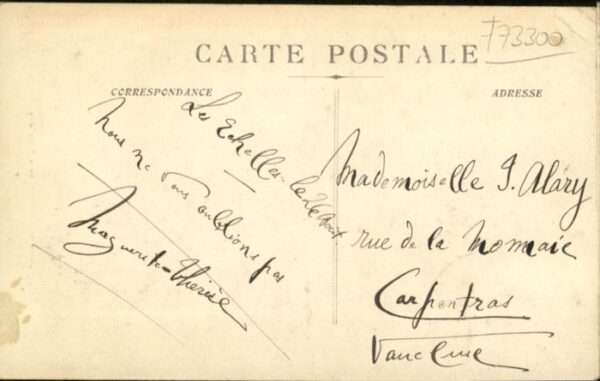 773300
CARTE POSTALE
CORRESPONDANCE
ADRESSE
Les Echelles - le 26 Août
Nous ne vous oublions pas
Marguerite-Thérèse
Mademoiselle J. Aláry
rue de la Monnaie
Carpentras
Vaucluse